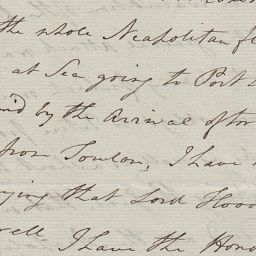 the whole Neapolitan f
at Sea going to Port
by the Arrival of
from Toulon, I have
ying that Lord Hoo
well I have the Hono